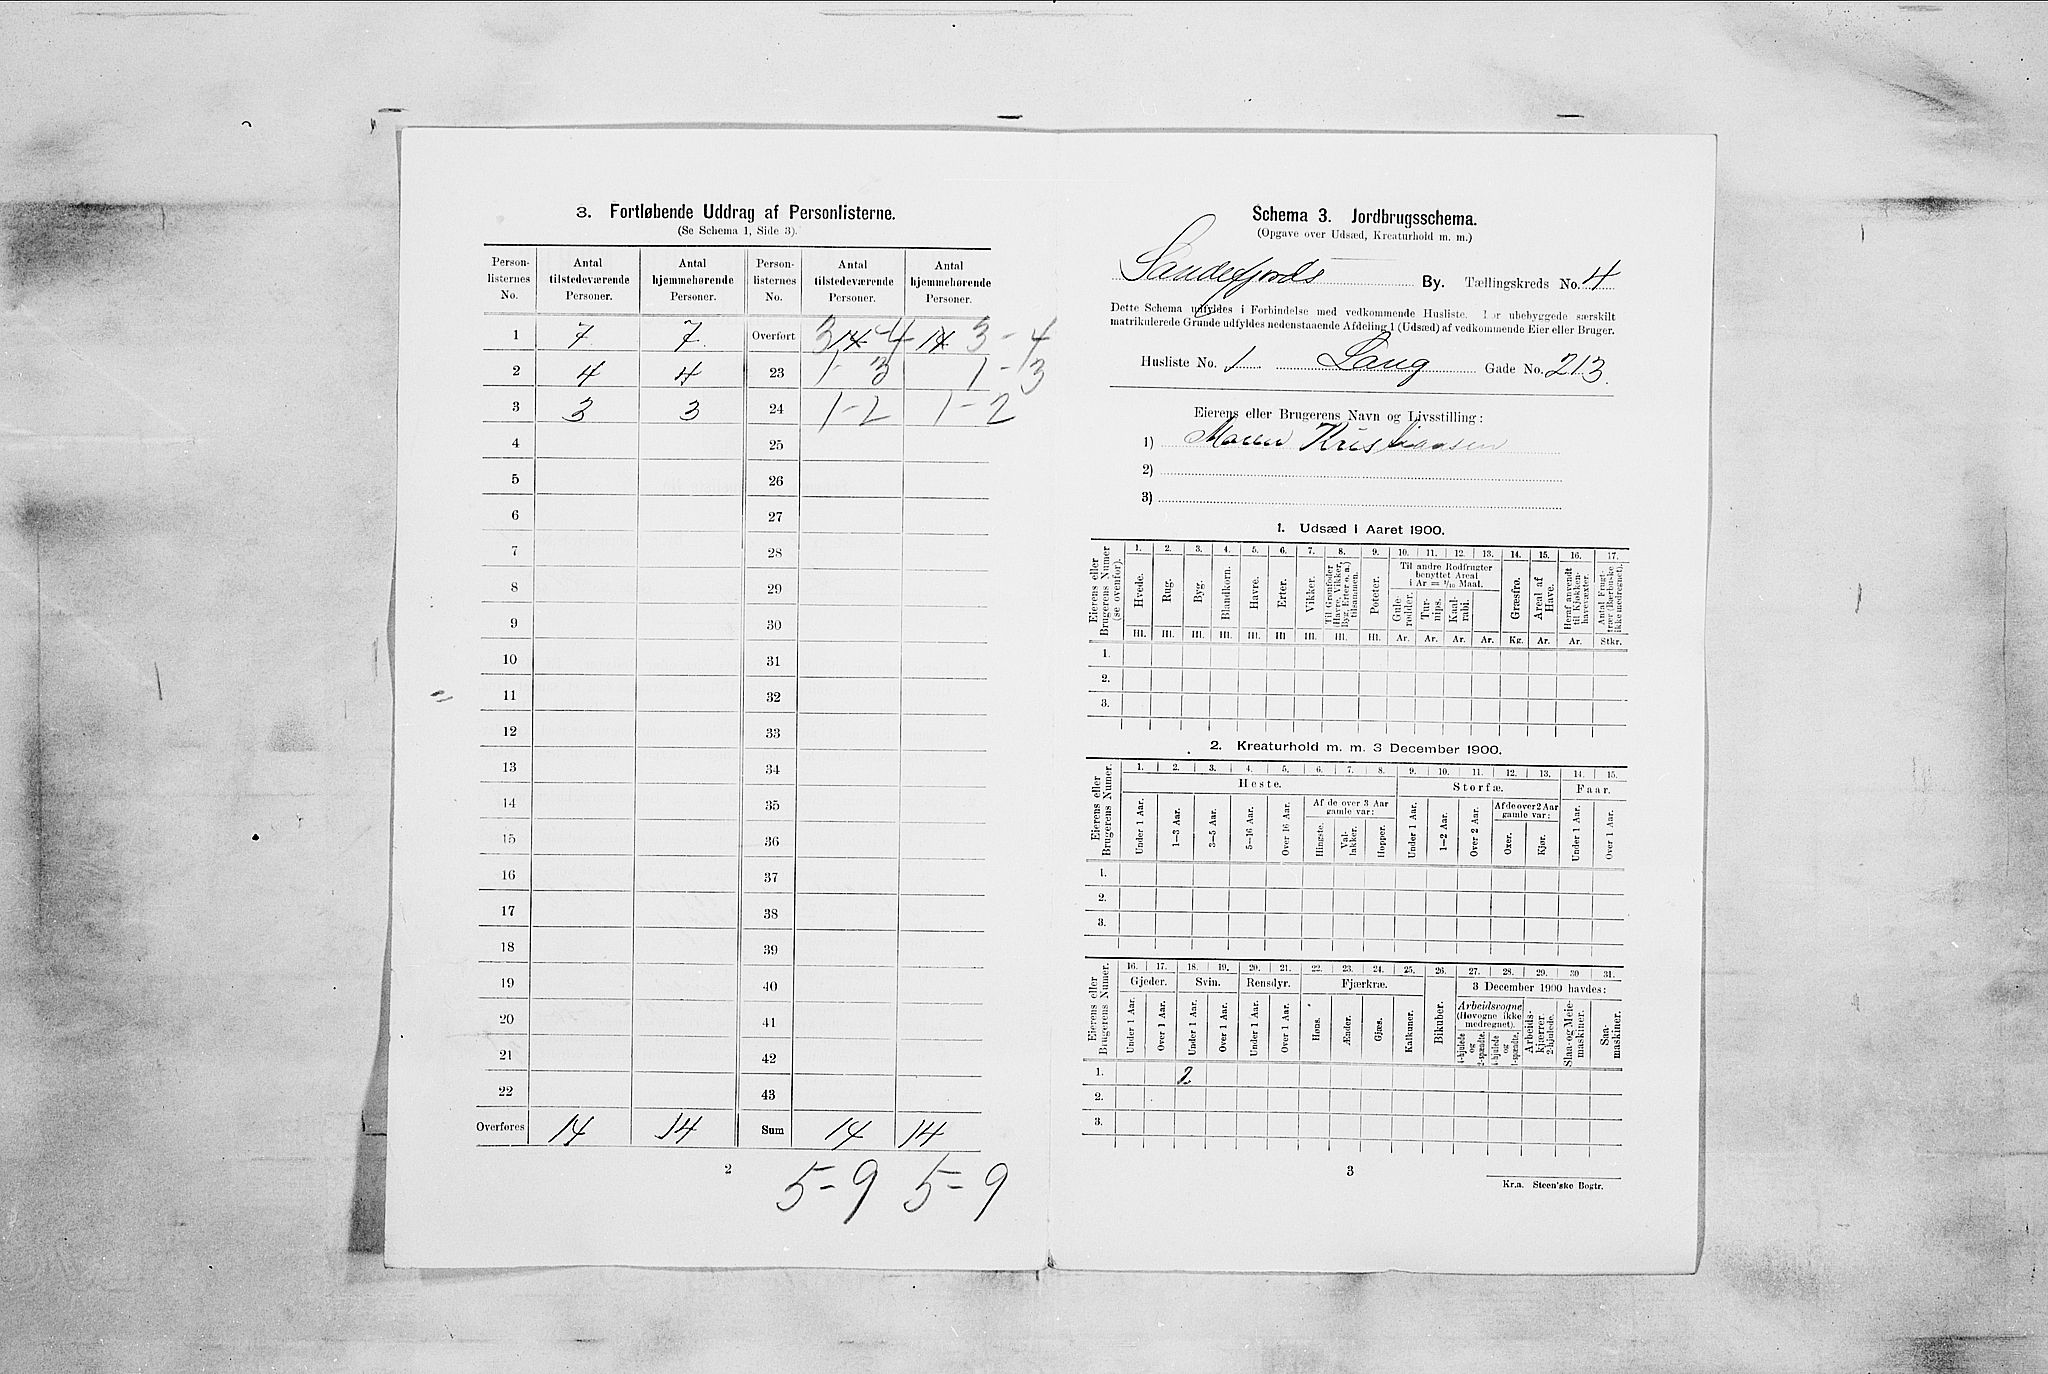 3. Fortløbende Uddrag af Personlisterne.
(Se Schema 1, Side 3).
Person-listernes No. | Antal tilstedeværende Personer. | Antal hjemmehørende Personer. | Person-listernes No. | Antal tilstedeværende Personer. | Antal hjemmehørende Personer.
1 | 7 | 7. | Overført | 14 3-4 | 14 3-4
2 | 4 | 4 | 23 | 1-3 | 1-3
3 | 3 | 3 | 24 | 1-2 | 1-2
4 25
5 26
6 27
7 28
8 29
9 30
10 31
11 32
12 33
13 34
14 35
15 36
16 37
17 38
18 39
19 40
20 41
21 42
22 43
Overføres | 14 | 14 | Sum | 14 | 14
5-9 5-9
2
Schema 3. Jordbrugsschema.
(Opgave over Udsæd, Kreaturhold m. m.)
Sandefjords By. Tællingskreds No. 4
Dette Schema udfyldes i Forbindelse med vedkommende Husliste. For ubebyggede særskilt
matrikulerede Grunde udfyldes nedenstaaende Afdeling 1 (Udsæd) af vedkommende Eier eller Bruger.
Husliste No. 1 Laug Gade No. 213.
Eierens eller Brugerens Navn og Livsstilling:
1) Maren Kristiansen
2)
3)
1. Udsæd i Aaret 1900.
Eierens eller Brugerens Numer (se ovenfor).
1. 2. 3. 4. 5. 6. 7. 8. 9. 10. 11. 12. 13. 14. 15. 16. 17.
Hvede. Rug. Byg. Blandkorn. Havre. Erter. Vikker. Til Grønfoder (Havre, Vikker, Byg, Erter o. a.) tilsammen. Poteter.
Til andre Rodfrugter benyttet Areal i Ar = 1/10 Maal.
Gule-rødder. Tur-nips. Kaal-rabi.
Græsfrø. Areal af Have. Heraf anvendt til Kjøkken-havevæxter. Antal Frugt-trær (Bærbuske ikke medregnet).
Hl. Hl. Hl. Hl. Hl. Hl Hl. Hl. Hl. Ar. Ar. Ar. Ar. Kg. Ar. Ar. Stkr.
1.
2.
3.
2. Kreaturhold m. m. 3 December 1900.
Eierens eller Brugerens Numer.
1. 2. 3. 4. 5. 6. 7. 8. 9. 10. 11. 12. 13. 14. 15.
Heste. Storfæ. Faar.
Under 1 Aar. 1–3 Aar. 3–5 Aar. 5–16 Aar. Over 16 Aar.
Af de over 3 Aar gamle var:
Hingste. Val-lakker. Hopper.
Under 1 Aar. 1–2 Aar. Over 2 Aar.
Af de over 2 Aar gamle var:
Oxer. Kjør.
Under 1 Aar. Over 1 Aar.
1.
2.
3.
Eierens eller Brugerens Numer.
16. 17. 18. 19. 20. 21. 22. 23. 24. 25. 26. 27. 28. 29. 30 31.
Gjeder. Svin. Rensdyr. Fjærkræ. Bikuber. 3 December 1900 havdes:
Under 1 Aar. Over 1 Aar. Under 1 Aar. Over 1 Aar. Under 1 Aar. Over 1 Aar. Høns. Ænder. Gjæs. Kalkuner.
Arbeidsvogne (Høvogne ikke medregnet).
4-hjulede og 2-spændte. 4-hjulede og 1-spændte.
Arbeids-kjærrer. 2-hjulede. Slaa-og Meie-maskiner. Saa-maskiner.
1. 2
2.
3.
3
Kr.a. Steen'ske Bogtr.